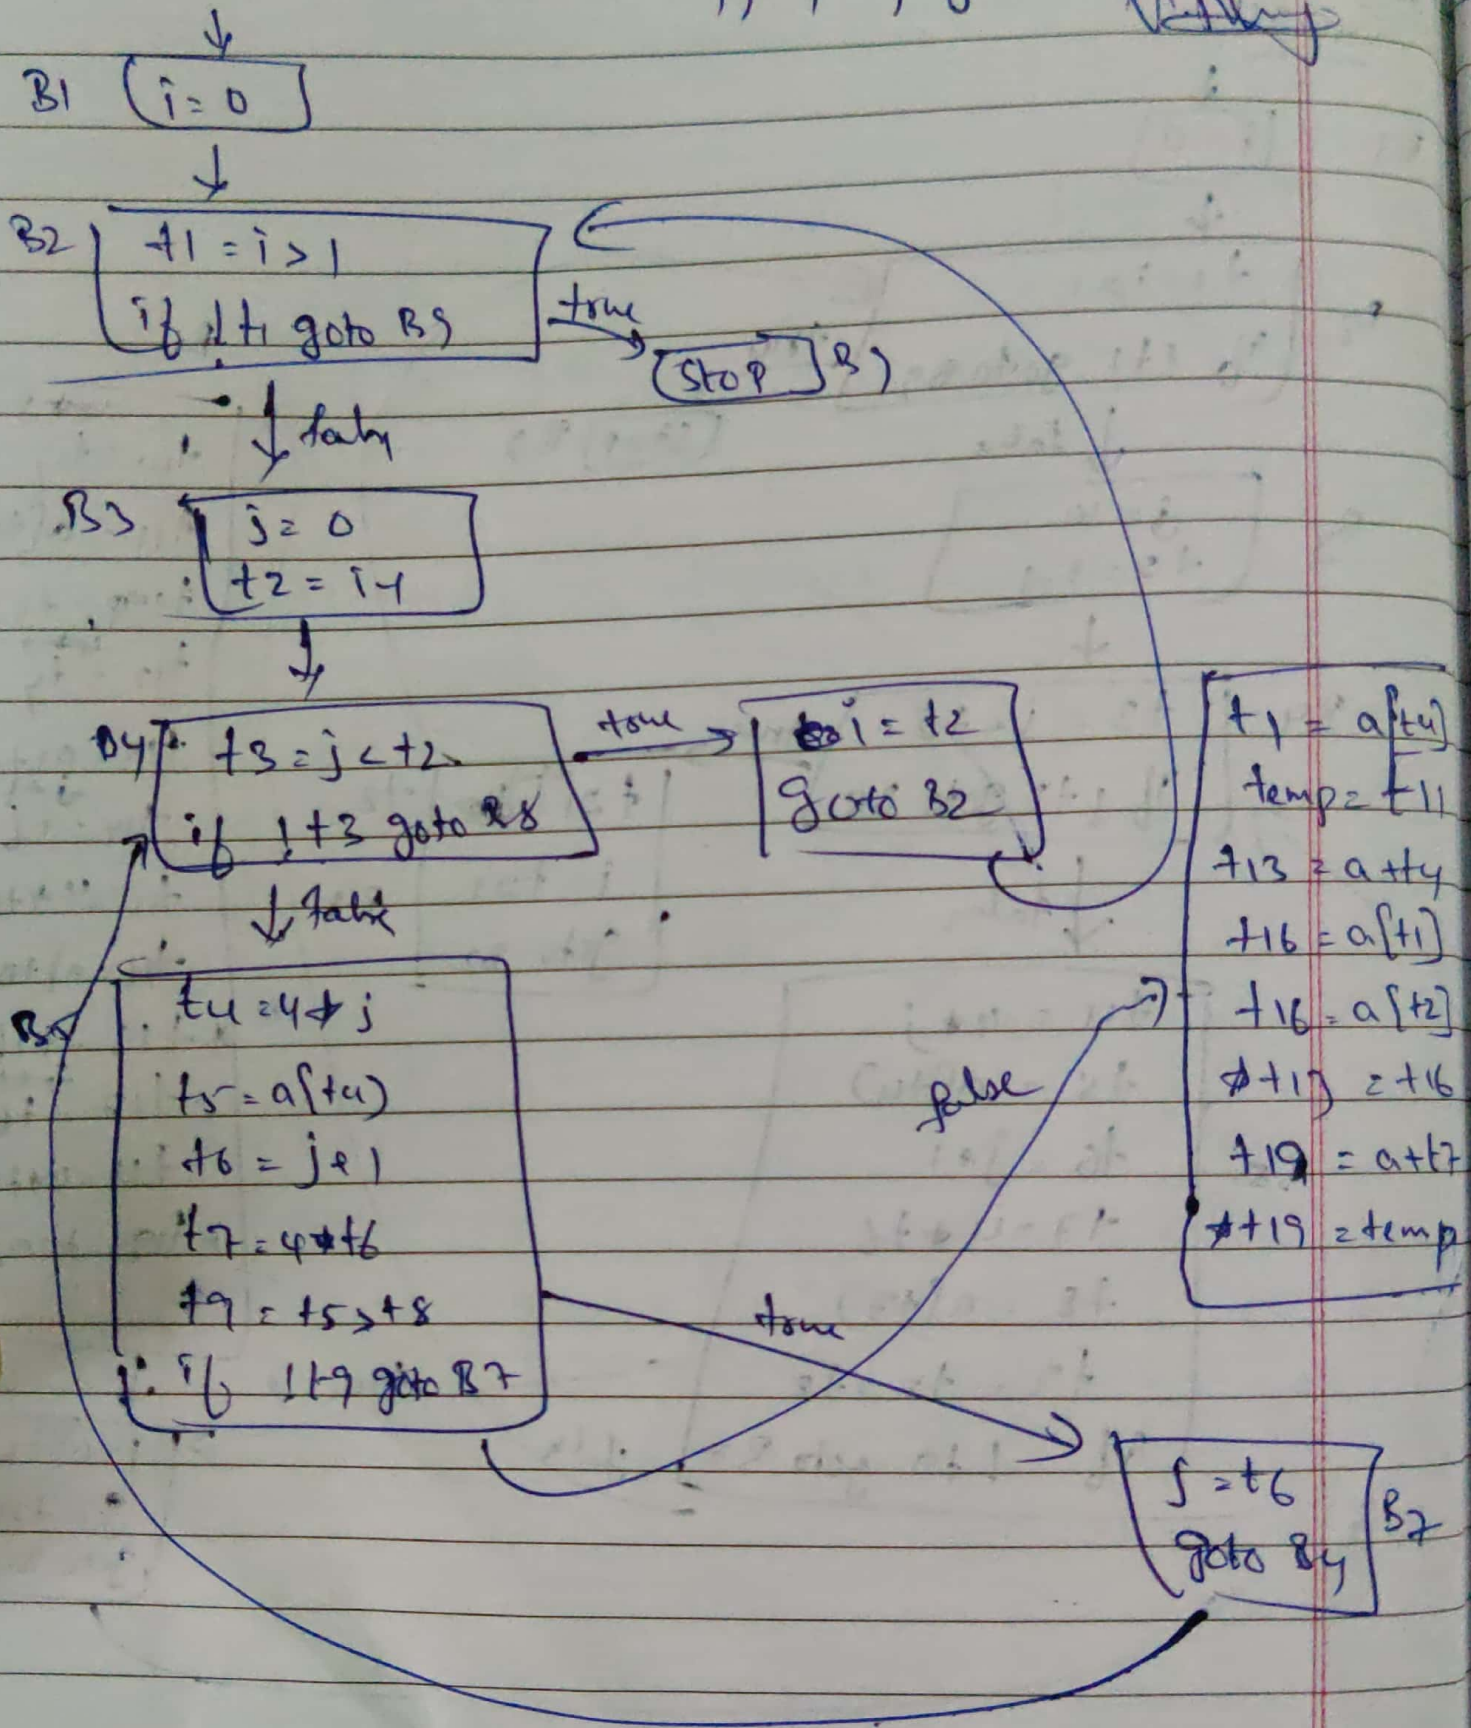 B1
i = 0
B2
t1 = i > 1
if !t1 goto B9
true
Stop
B9
false
B3
j = 0
t2 = i-1
B4
t3 = j < t2
if !t3 goto B8
true
i = t2
goto B2
false
B5
t4 = 4 * j
t5 = a[t4]
t6 = j+1
t7 = 4*t6
t9 = t5 > t8
if !t9 goto B7
false
true
t1 = a[t4]
temp = t11
t13 = a+t4
t16 = a[t1]
t16 = a[t2]
*t13 = t16
t19 = a+t7
*t19 = temp
j = t6
goto B4
B7